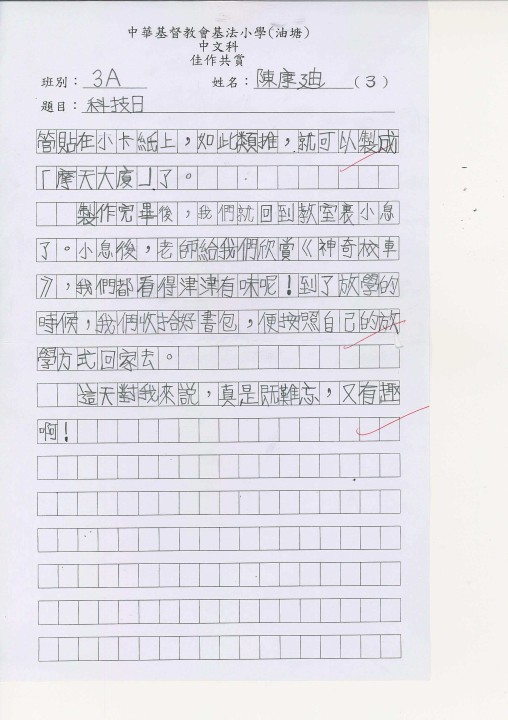 中華基督教會基法小學(油塘)
中文科
佳作共賞
班別： 3A 姓名：陳摩迪 (3)
題目：科技日
筒貼在小卡紙上，如此類推，就可以製成
「摩天大廈」了。
製作完畢後，我們就回到教室裏小息
了。小息後，老師給我們欣賞《神奇校車
》，我們都看得津津有味呢！到了放學的
時候，我們收拾好書包，便按照自己的放
學方式回家去。
這天對我來說，真是既難忘，又有趣
啊！